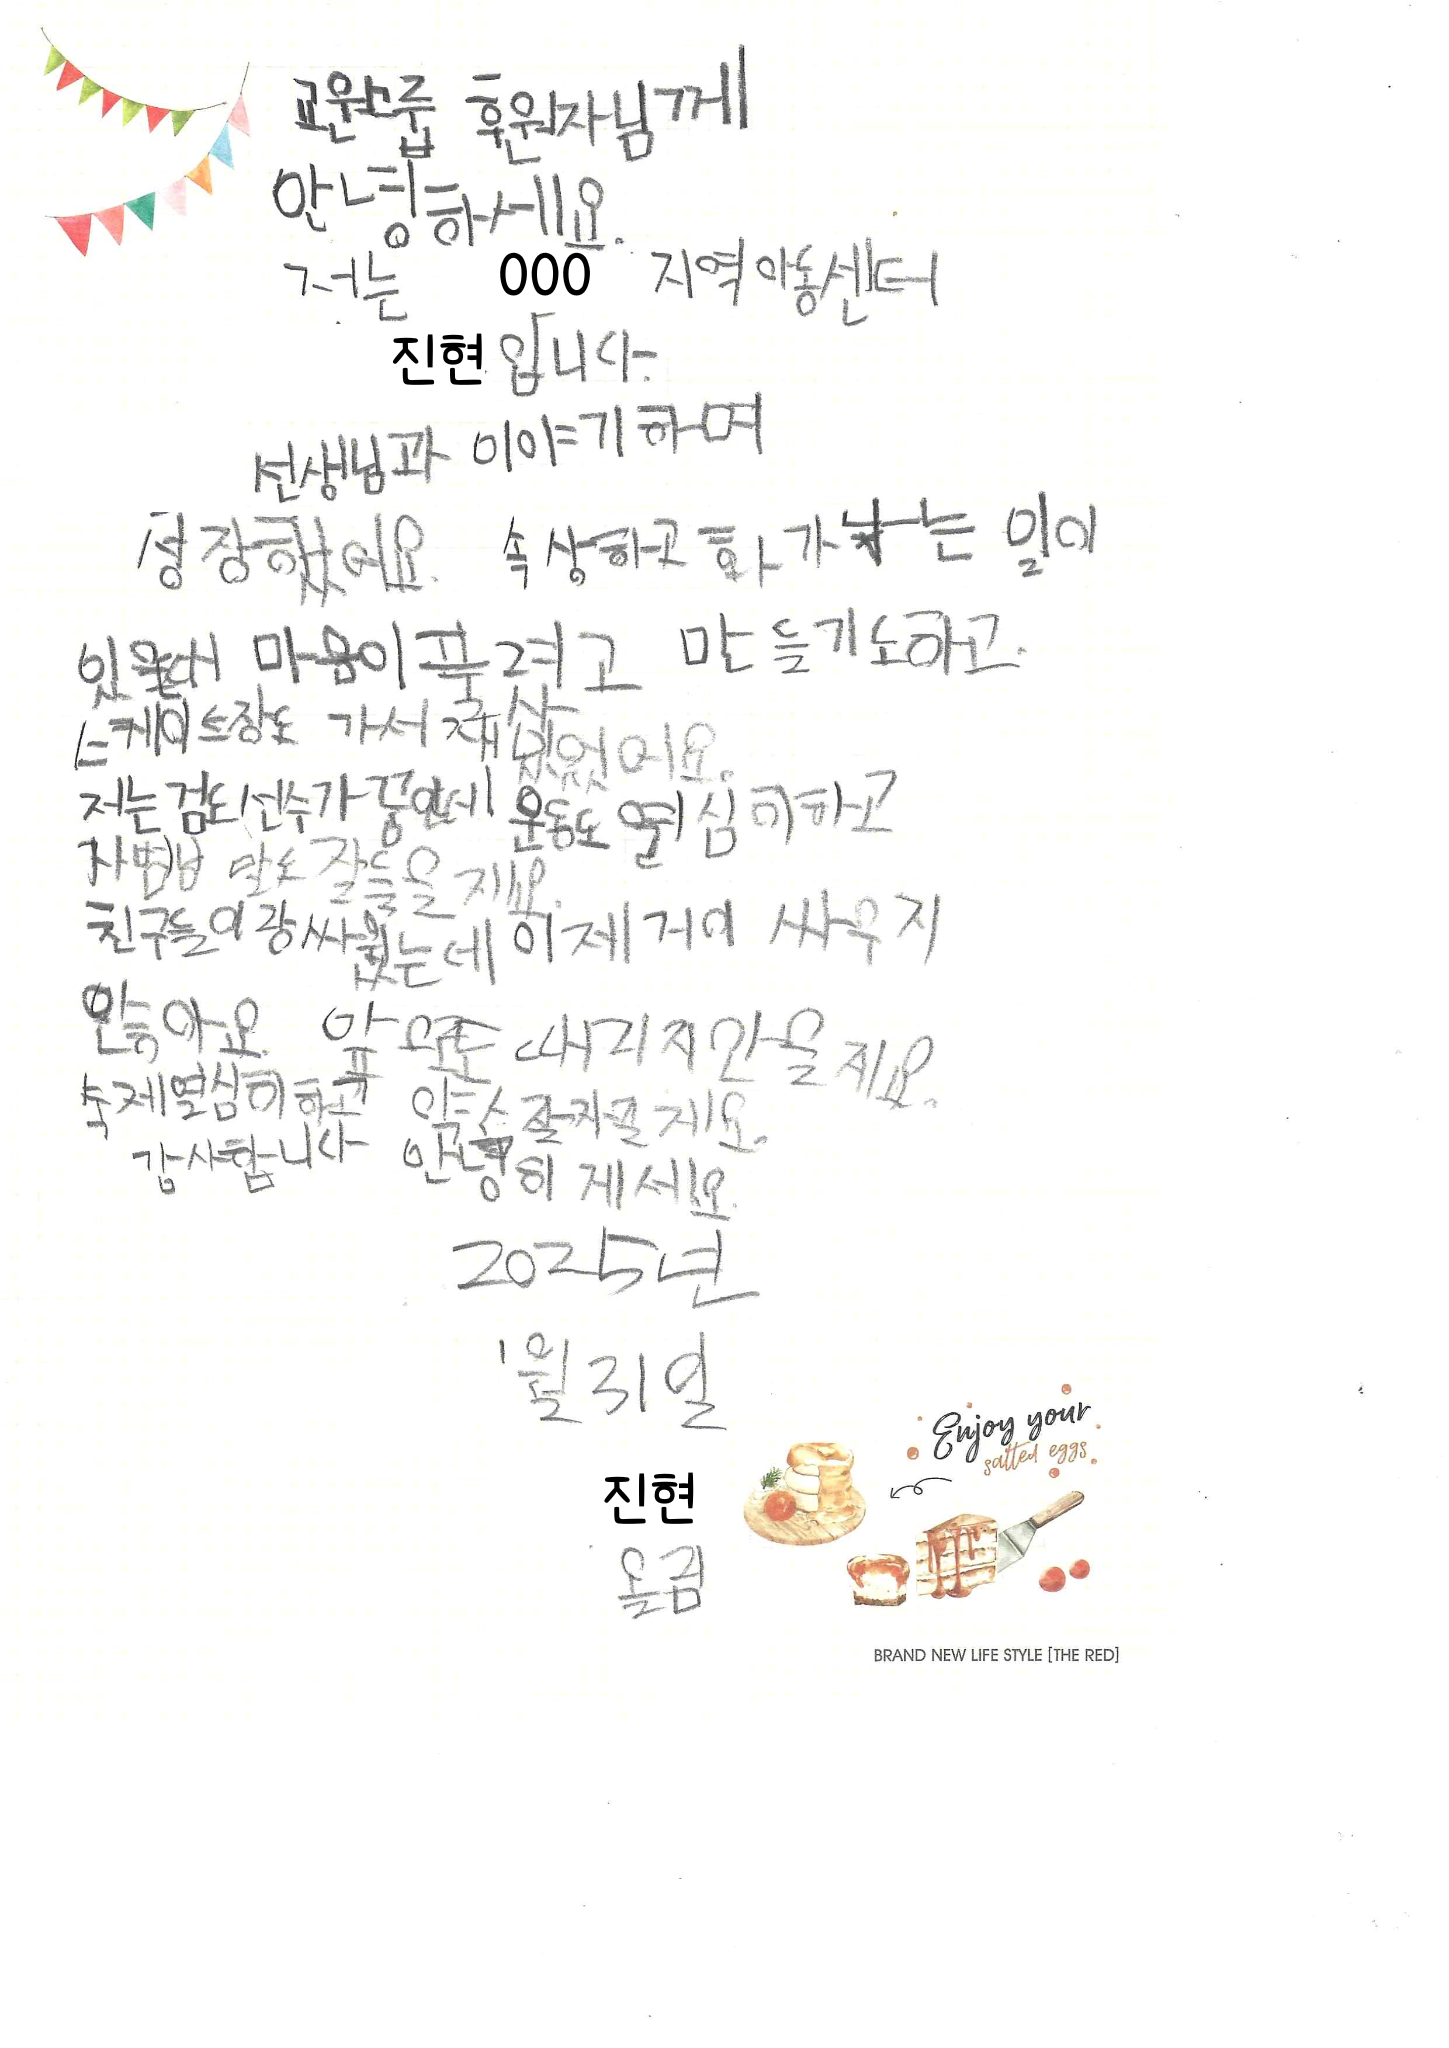 교원그룹 후원자님께
안녕하세요.
저는 OOO 지역아동센터
진현 입니다.
선생님과 이야기하며
성장했어요. 속상하고 화가 나는 일이
있을때 마음이 풀려고 만들기도하고.
스케이트장도 가서 재밌었어요.
저는 검도선수가 꿍인데 운동도 열심히하고
사범님 말도 잘들을게요.
친구들이랑 싸웠는데 이제 거이 싸우지
안하아요. 앞으론 때리지안을게요.
숙제열심히하고 약속잘지킬게요.
감사합니다 안녕히 계세요.
2025년
1월 31일
진현
올림
Enjoy your
salted eggs
BRAND NEW LIFE STYLE [THE RED]